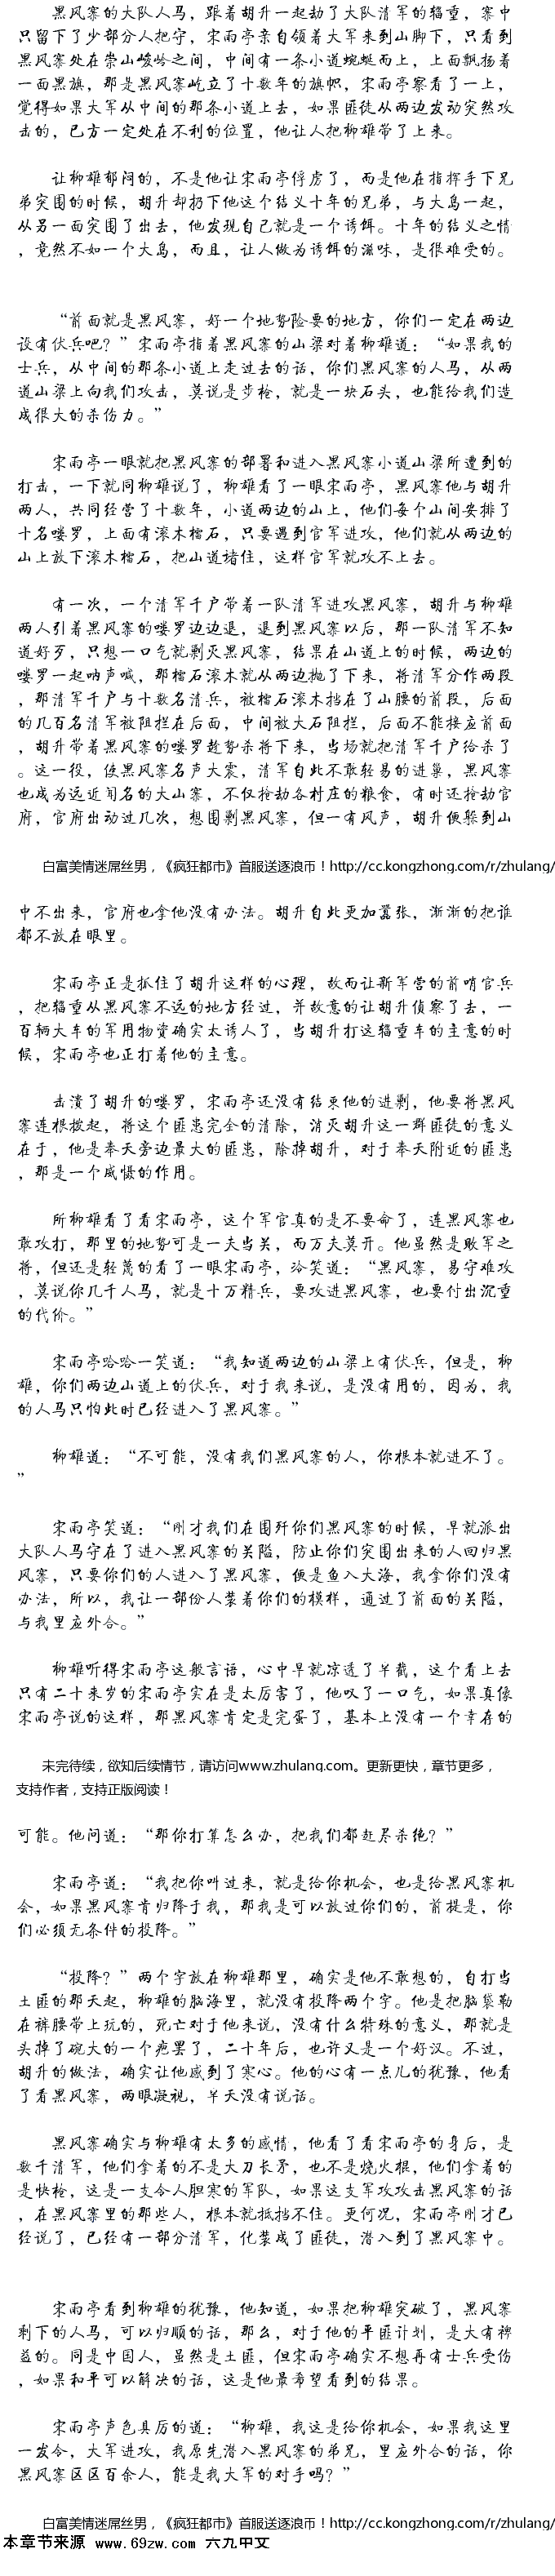 黑风寨的大队人马，跟着胡升一起劫了大队清军的辎重，寨中
只留下了少部分人把守，宋雨亭亲自领着大军来到山脚下，只看到
黑风寨处在崇山峻岭之间，中间有一条小道蜿蜒而上，上面飘扬着
一面黑旗，那是黑风寨屹立了十数年的旗帜，宋雨亭察看了一上，
觉得如果大军从中间的那条小道上去，如果匪徒从两边发动突然攻
击的，己方一定处在不利的位置，他让人把柳雄带了上来。
让柳雄郁闷的，不是他让宋雨亭俘虏了，而是他在指挥手下兄
弟突围的时候，胡升却扔下他这个结义十年的兄弟，与大岛一起，
从另一面突围了出去，他发现自己就是一个诱饵。十年的结义之情
，竟然不如一个大岛，而且，让人做为诱饵的滋味，是很难受的。
“前面就是黑风寨，好一个地势险要的地方，你们一定在两边
设有伏兵吧？”宋雨亭指着黑风寨的山梁对着柳雄道：“如果我的
士兵，从中间的那条小道上走过去的话，你们黑风寨的人马，从两
道山梁上向我们攻击，莫说是步枪，就是一块石头，也能给我们造
成很大的杀伤力。”
宋雨亭一眼就把黑风寨的部署和进入黑风寨小道山梁所遭到的
打击，一下就同柳雄说了，柳雄看了一眼宋雨亭，黑风寨他与胡升
两人，共同经营了十数年，小道两边的山上，他们每个山间安排了
十名喽罗，上面有滚木檑石，只要遇到官军进攻，他们就从两边的
山上放下滚木檑石，把山道堵住，这样官军就攻不上去。
有一次，一个清军千户带着一队清军进攻黑风寨，胡升与柳雄
两人引着黑风寨的喽罗边边退，退到黑风寨以后，那一队清军不知
道好歹，只想一口气就剿灭黑风寨，结果在山道上的时候，两边的
喽罗一起呐声喊，那檑石滚木就从两边抛了下来，将清军分作两段
，那清军千户与十数名清兵，被檑石滚木挡在了山腰的前段，后面
的几百名清军被阻拦在后面，中间被大石阻拦，后面不能接应前面
，胡升带着黑风寨的喽罗趁势杀将下来，当场就把清军千户给杀了
。这一役，使黑风寨名声大震，清军自此不敢轻易的进巢，黑风寨
也成为远近闻名的大山寨，不仅抢劫各村庄的粮食，有时还抢劫官
府，官府出动过几次，想围剿黑风寨，但一有风声，胡升便躲到山
白富美情迷屌丝男，《疯狂都市》首服送逐浪币！http://cc.kongzhong.com/r/zhulang/
中不出来，官府也拿他没有办法。胡升自此更加嚣张，渐渐的把谁
都不放在眼里。
宋雨亭正是抓住了胡升这样的心理，故而让新军营的前哨官兵
，把辎重从黑风寨不远的地方经过，并故意的让胡升侦察了去，一
百辆大车的军用物资确实太诱人了，当胡升打这辎重车的主意的时
候，宋雨亭也正打着他的主意。
击溃了胡升的喽罗，宋雨亭还没有结束他的进剿，他要将黑风
寨连根拨起，将这个匪患完全的清除，消灭胡升这一群匪徒的意义
在于，他是奉天旁边最大的匪患，除掉胡升，对于奉天附近的匪患
，那是一个威慑的作用。
所柳雄看了看宋雨亭，这个军官真的是不要命了，连黑风寨也
敢攻打，那里的地势可是一夫当关，而万夫莫开。他虽然是败军之
将，但还是轻蔑的看了一眼宋雨亭，冷笑道：“黑风寨，易守难攻
，莫说你几千人马，就是十万精兵，要攻进黑风寨，也要付出沉重
的代价。”
宋雨亭哈哈一笑道：“我知道两边的山梁上有伏兵，但是，柳
雄，你们两边山道上的伏兵，对于我来说，是没有用的，因为，我
的人马只怕此时已经进入了黑风寨。”
柳雄道：“不可能，没有我们黑风寨的人，你根本就进不了。
”
宋雨亭笑道：“刚才我们在围歼你们黑风寨的时候，早就派出
大队人马守在了进入黑风寨的关隘，防止你们突围出来的人回归黑
风寨，只要你们的人进入了黑风寨，便是鱼入大海，我拿你们没有
办法，所以，我让一部份人装着你们的模样，通过了前面的关隘，
与我里应外合。”
柳雄听得宋雨亭这般言语，心中早就凉透了半截，这个看上去
只有二十来岁的宋雨亭实在是太厉害了，他叹了一口气，如果真像
宋雨亭说的这样，那黑风寨肯定是完蛋了，基本上没有一个幸存的
未完待续，欲知后续情节，请访问www.zhulang.com。更新更快，章节更多，
支持作者，支持正版阅读！
可能。他问道：“那你打算怎么办，把我们都赶尽杀绝？”
宋雨亭道：“我把你叫过来，就是给你机会，也是给黑风寨机
会，如果黑风寨肯归降于我，那我是可以放过你们的，前提是，你
们必须无条件的投降。”
“投降？”两个字放在柳雄那里，确实是他不敢想的，自打当
土匪的那天起，柳雄的脑海里，就没有投降两个字。他是把脑袋勒
在裤腰带上玩的，死亡对于他来说，没有什么特殊的意义，那就是
头掉了碗大的一个疤罢了，二十年后，也许又是一个好汉。不过，
胡升的做法，确实让他感到了寒心。他的心有一点儿的犹豫，他看
了看黑风寨，两眼凝视，半天没有说话。
黑风寨确实与柳雄有太多的感情，他看了看宋雨亭的身后，是
数千清军，他们拿着的不是大刀长矛，也不是烧火棍，他们拿着的
是快枪，这是一支令人胆寒的军队，如果这支军攻攻击黑风寨的话
，在黑风寨里的那些人，根本就抵挡不住。更何况，宋雨亭刚才已
经说了，已经有一部分清军，化装成了匪徒，潜入到了黑风寨中。
宋雨亭看到柳雄的犹豫，他知道，如果把柳雄突破了，黑风寨
剩下的人马，可以归顺的话，那么，对于他的平匪计划，是大有裨
益的。同是中国人，虽然是土匪，但宋雨亭确实不想再有士兵受伤
，如果和平可以解决的话，这是他最希望看到的结果。
宋雨亭声色具厉的道：“柳雄，我这是给你机会，如果我这里
一发令，大军进攻，我原先潜入黑风寨的弟兄，里应外合的话，你
黑风寨区区百余人，能是我大军的对手吗？”
白富美情迷屌丝男，《疯狂都市》首服送逐浪币！http://cc.kongzhong.com/r/zhulang/
本章节来源 www.69zw.com 六九中文